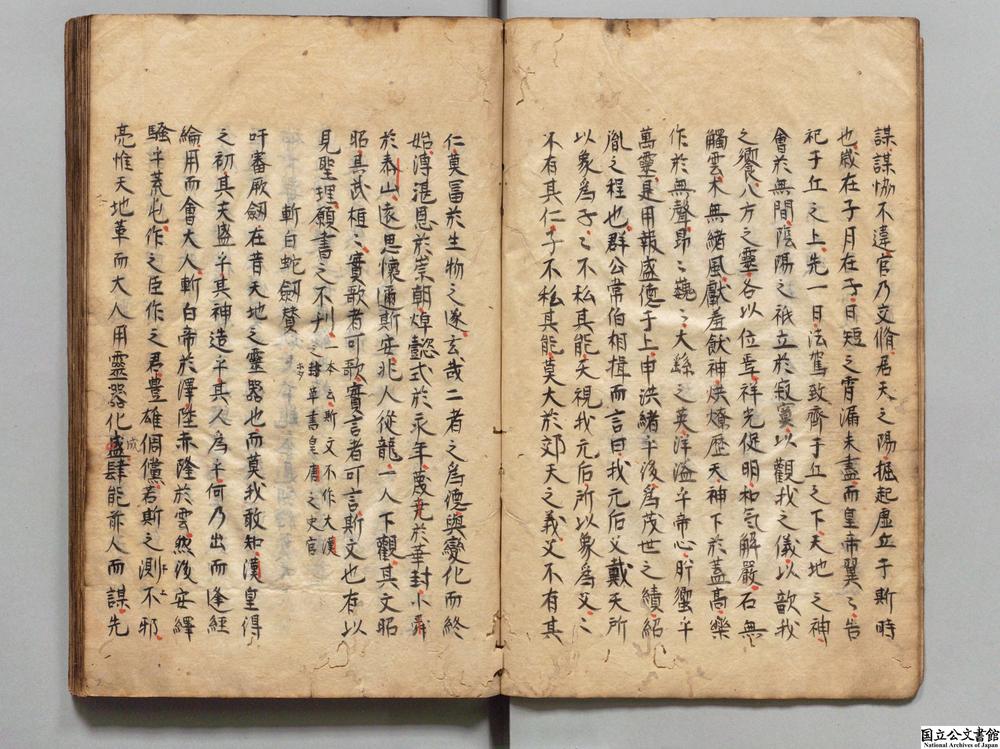 謀謀恊不違官乃文脩君天之陽掘起虚立于斯時
也歳在子月在子日短之霄漏未盡而皇帝翼〻告
祀于丘之上先一日法駕致齊于丘之下天地之神
會於無間陰陽之祇立於寂寞以觀我之儀以歆我
之饗八方之靈各以位奉祥先促明和氣解嚴石無
觸雲木無緒風獻羞飫神烘燎歴天神下於蓋高樂
作於無聲昂〻巍〻大絲之英洋溢乎帝心肸蠁乎
萬靈是用報盛德于上申洪緒乎後為茂世之績紹
胤之程也群公常伯相揖而言曰我元后父戴天所
以象為子〻不私其能天視我元后所以象為父〻
不有其仁子不私其能莫大於郊天之義父不有其
仁莫冨於生物之遂玄哉二者之為德與變化而終
始溥湛恩於崇朝焯懿式於永年㢡堯於華封小舜
於泰山表思懷邇斯安兆人從龍一人下觀其文昭
昭其武桓〻實歌者可歌實言者可言斯文也有以
見聖理願書之不刋一本云斯文不作大漢之𨽻華書皇唐之史官
斬白蛇劔賛
吁審厥劔在昔天地之靈器也而莫我敢知漢皇得
之初其天盛乎其神造乎其人為乎何乃出而逢經
綸用而會大人斬白帝於澤陸赤隆於雲然後安繹
騷乎蓋屯作之臣作之君豊雄倜儻若斯之測不邪
亮惟天地革而大人用靈器化盛肆能前人而謀先
成
国立公文書館
National Archives of Japan